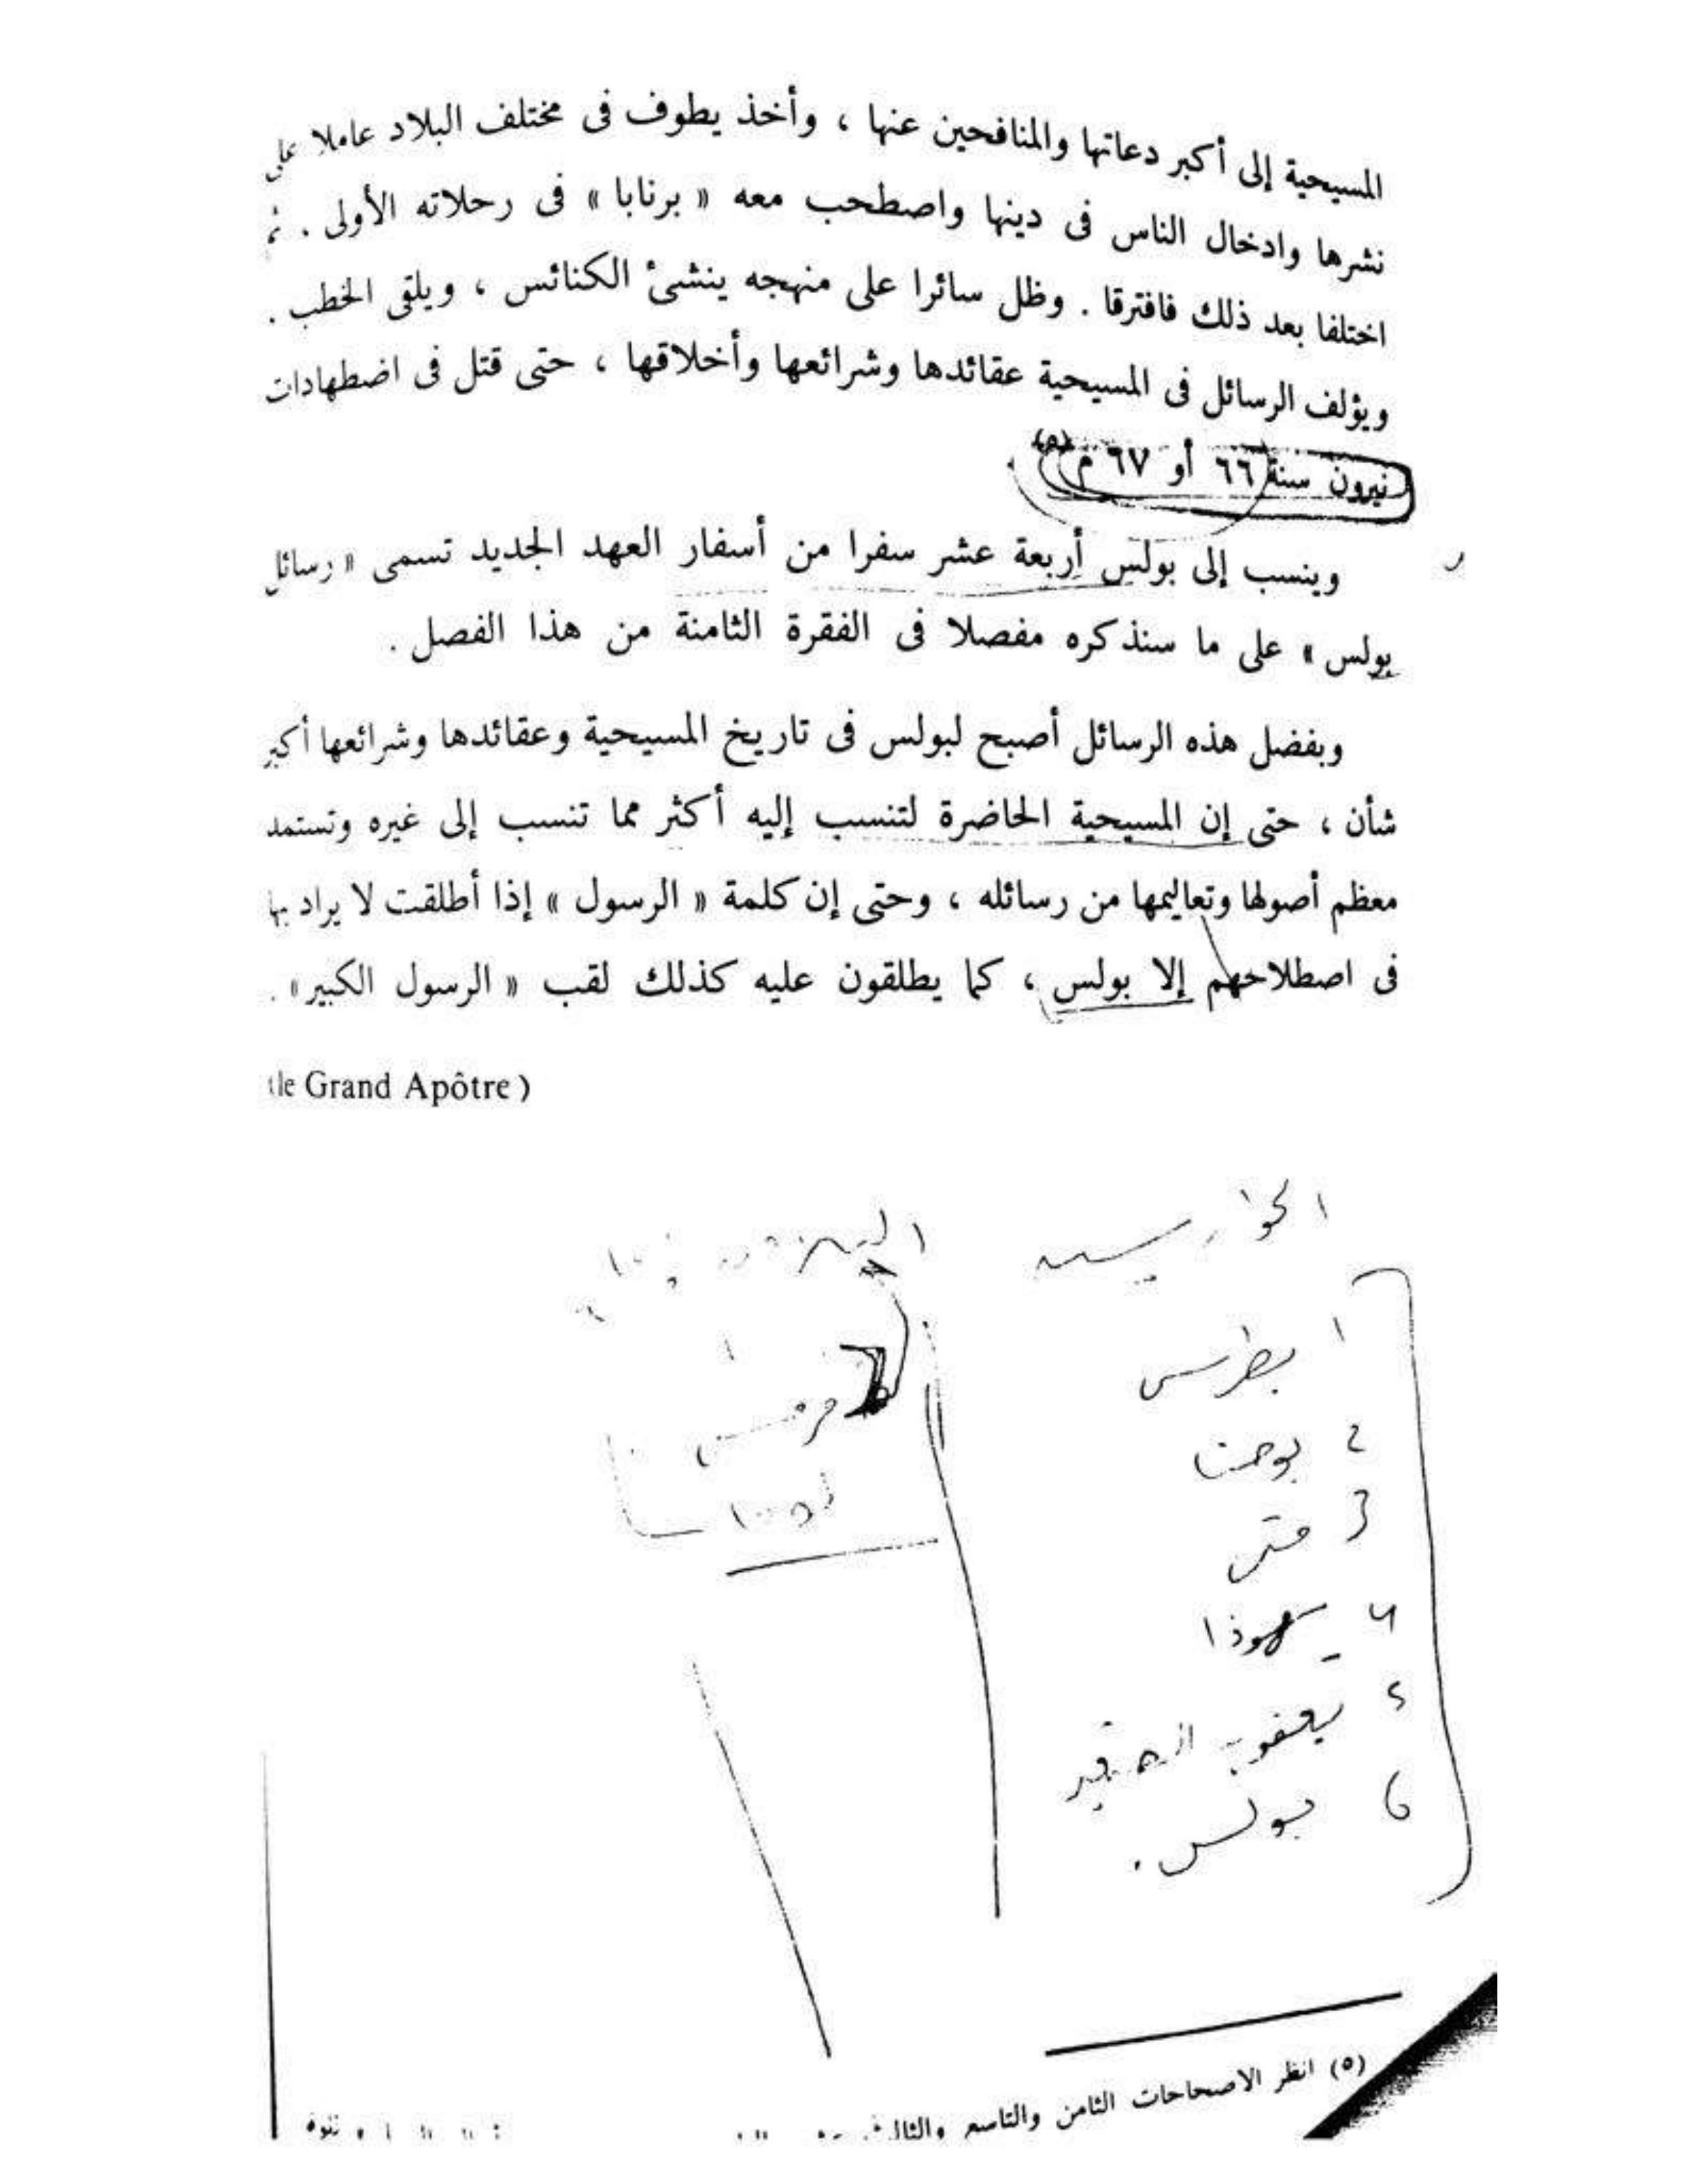 المسيحية إلى أكبر دعاتها والمنافحين عنها ، وأخذ يطوف فى مختلف البلاد عاملا على
نشرها وادخال الناس فى دينها واصطحب معه « برنابا » فى رحلاته الأولى . ثم
اختلفا بعد ذلك فافترقا . وظل سائرا على منهجه ينشئ الكنائس ، ويلقى الخطب .
ويؤلف الرسائل فى المسيحية عقائدها وشرائعها وأخلاقها ، حتى قتل فى اضطهادات
نيرون سنة ٦٦ أو ٦٧ م (٥)
وينسب إلى بولس أربعة عشر سفرا من أسفار العهد الجديد تسمى « رسائل
بولس » على ما سنذكره مفصلا فى الفقرة الثامنة من هذا الفصل .
وبفضل هذه الرسائل أصبح لبولس فى تاريخ المسيحية وعقائدها وشرائعها أكبر
شأن ، حتى إن المسيحية الحاضرة لتنسب إليه أكثر مما تنسب إلى غيره وتستمد
معظم أصولها وتعاليمها من رسائله ، وحتى إن كلمة « الرسول » إذا أطلقت لا يراد بها
فى اصطلاحهم إلا بولس ، كما يطلقون عليه كذلك لقب « الرسول الكبير» .
(le Grand Apôtre)
الحواريين
1 بطرس
2 يوحنا
3 متى
4 يهوذا
5 يعقوب الصغير
6 بولس .
مرقس
لوقا
(٥) انظر الاصحاحات الثامن والتاسع والثالث